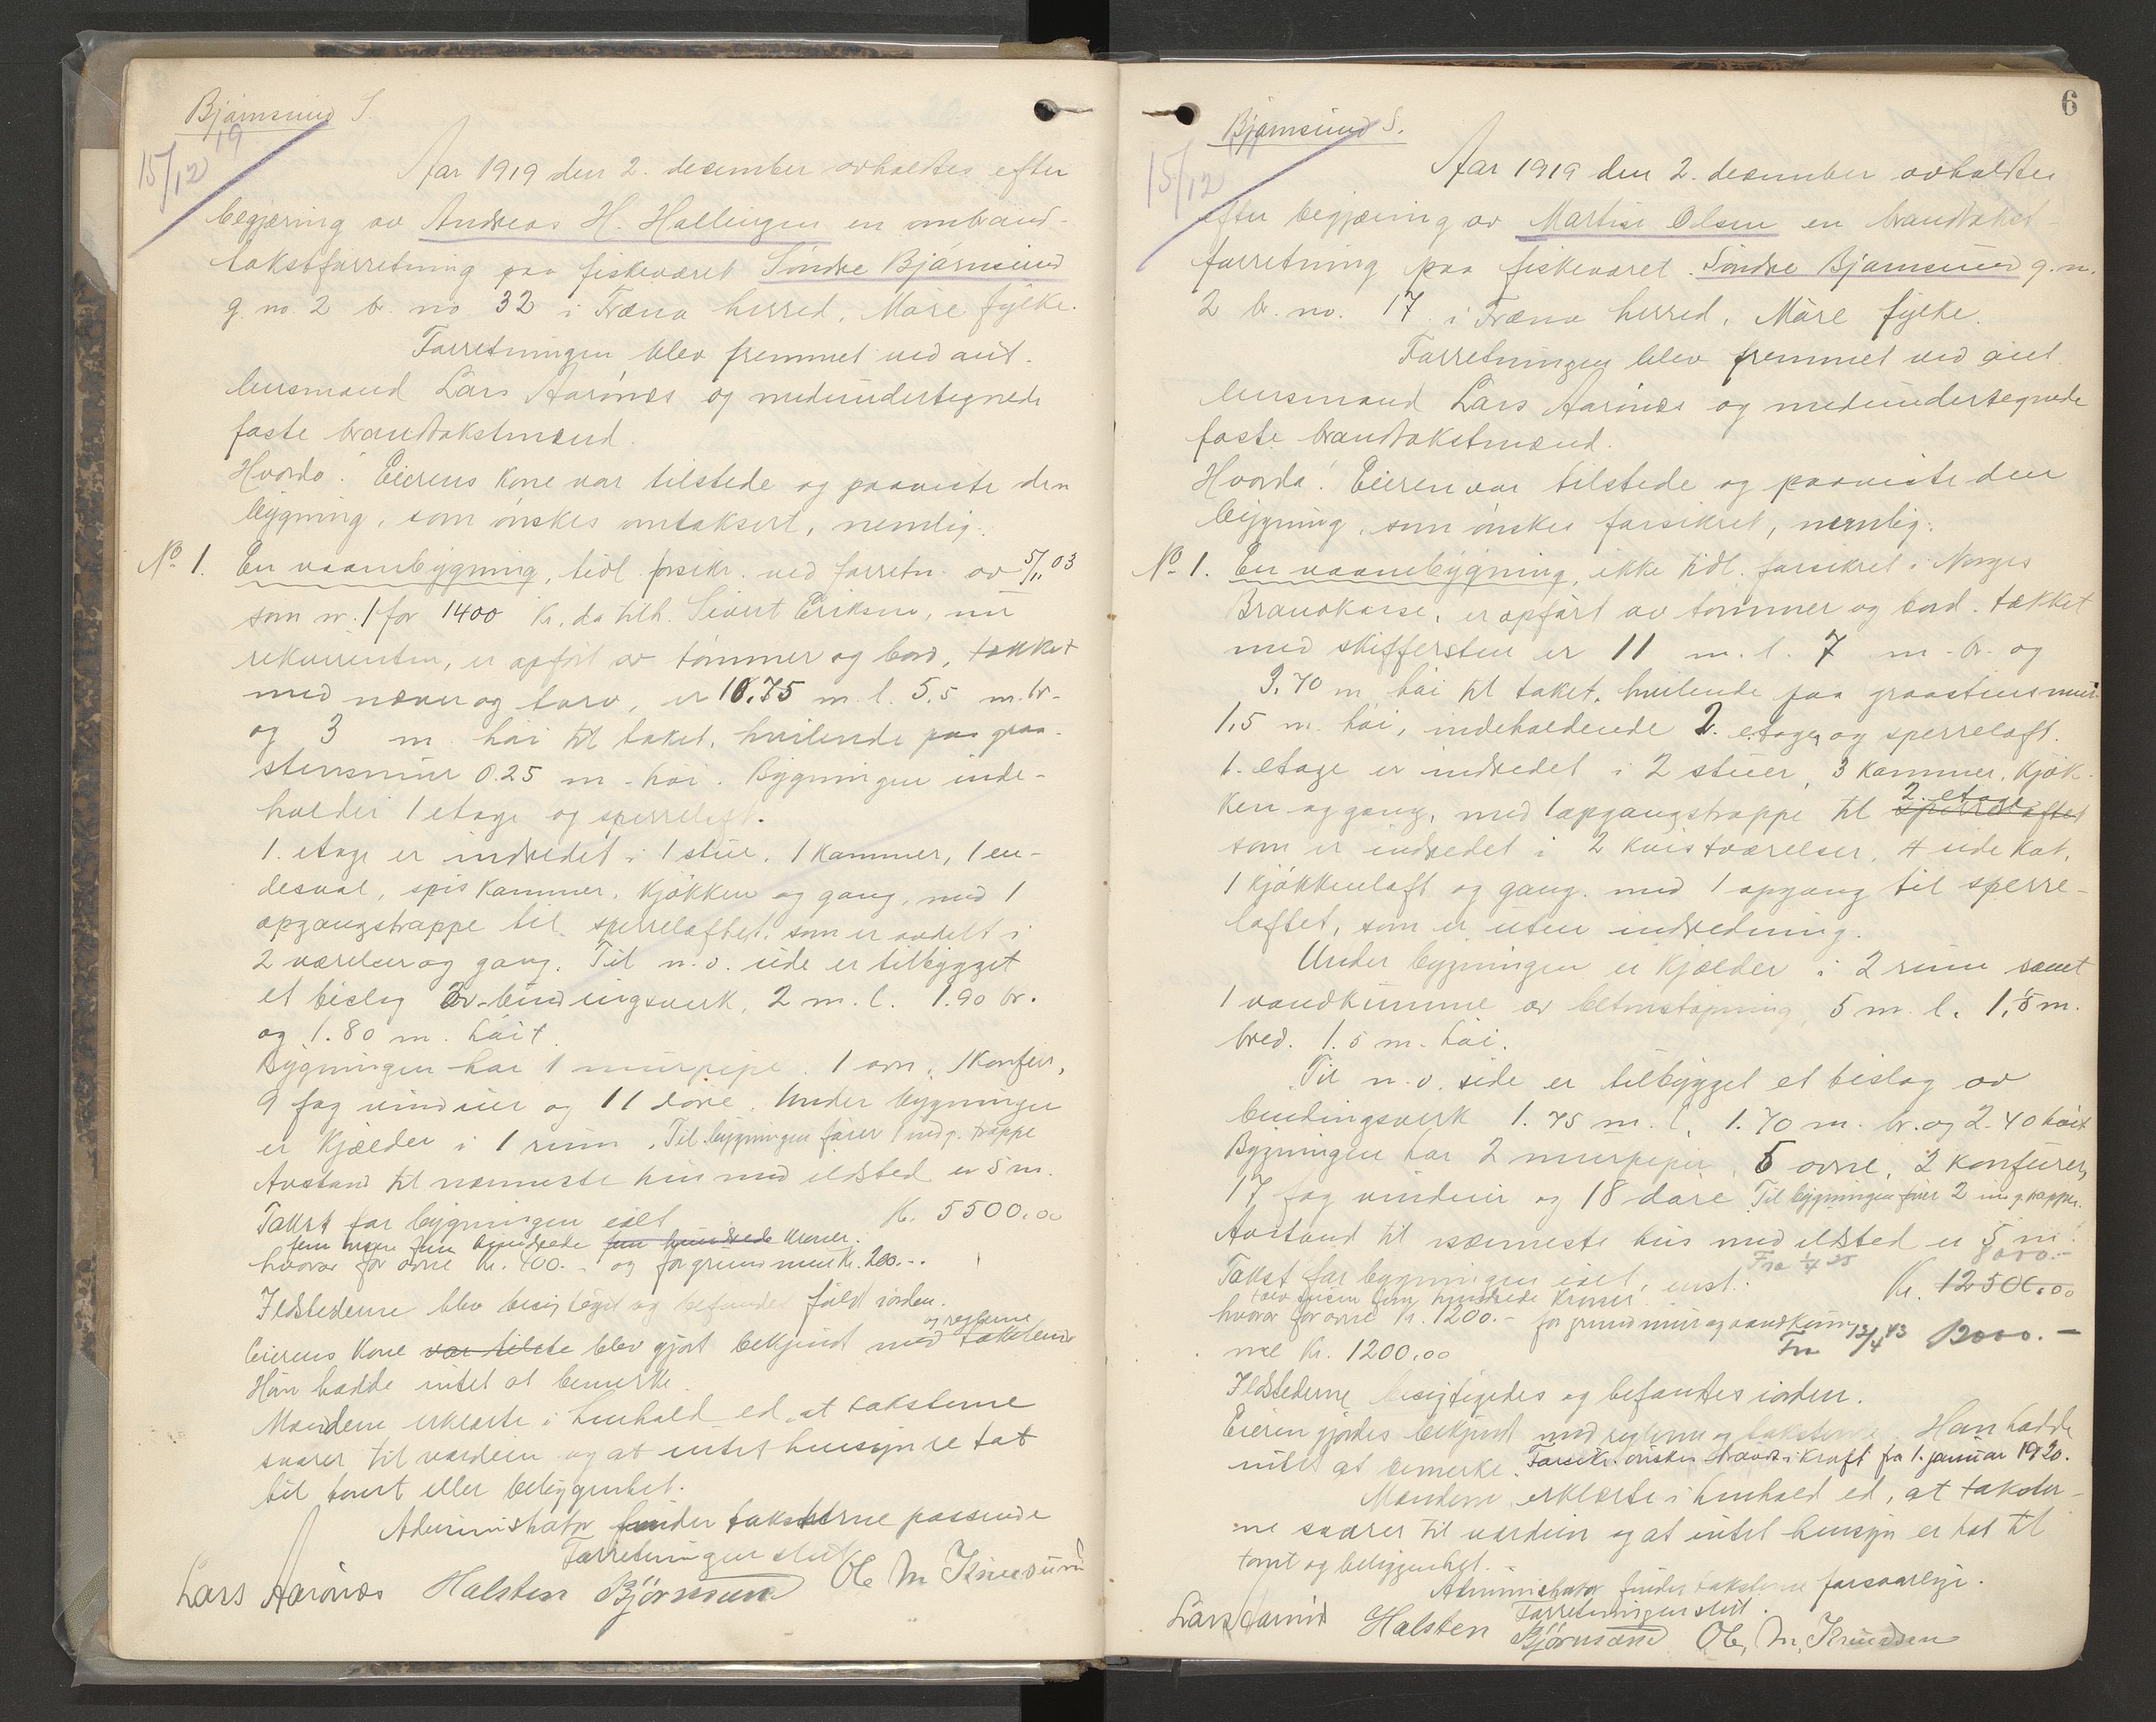 Bjørnsund S.
15/12 19
Aar 1919 den 2. december avholdtes efter
begjæring av Andreas H. Hallingen en ombrand-
takstforretning paa fiskeværet Söndre Björnsund
g. no. 2 b. no 32 i Fræna herred, Möre fylke.
Forretningen blev fremmet ved aut.
lensmand Lars Aarönæs og medundertegnede
faste brandtakstmænd.
Hvorda: Eierens kone var tilstede og paaviste den
bygning, som önskes omtaksert, nemlig:
No. 1. En vaanebygning, tidl forsikr. ved forretn. av 5/11 03
som nr. 1 for 1400 kr. da tilh. Sivert Eriksen, nu
rekvirenten, er opfört av tömmer og bord, tækket
med næver og torv, er 10.75 m. l. 5.5 m. br.
og 3 m. höi til taket, hvilende paa graa-
stensmur 0.25 m. höi. Bygningen inde-
holder 1 etage og sperreloft.
1. etage er indredet i 1 stue, 1 kammer, 1 en-
desval, spiskammer, kjökken og gang, med 1
opgangstrappe til sperreloftet, som er avdelt i
2 værelser og gang. Til n.v. side er tilbygget
et bislag av bindingsverk, 2 m. l. 1.90 br.
og 1.80 m. höit
Bygningen har 1 murpipe, 1 ovn, 1 komfur,
9 fag vinduer og 11 döre. Under bygningen
er kjælder i 1 rum. Til bygningen förer 1 indg. trappe
Avstand til nærmeste hus med ildsted er 5 m.
Takst for bygningen ialt Kr. 5500.00
fem tusen fem hundrede fem hundrede kroner.
hvorav for ovne kr. 400.- og for grundmur kr. 200.-.
Ildstederne blev besigtiget og befundet fuldt iorden.
Eierens kone var tilste blev gjort bekjendt med og reglerne takstene
Hun hadde intet at bemerke.
Mændene erklærte i henhold ed, at taksterne
svarer til værdien og at intet hensyn er tat
til tomt eller beliggenhet.
Administrator finder taksterne passende
Forretningen slut
Lars Aarönæs Halsten Björnsund Ole M Knudsen
6
Bjørnsund S.
15/12
Aar 1919 den 2. december avholdtes
efter begjæring av Martin Olsen en brandtakst
forretning paa fiskeværet Söndre Bjørnsund g. n.
2 br. no. 17 i Fræna herred, Möre fylke.
Forretningen blev fremmet ved aut.
lensmand Lars Aarönæs og medundertegnede
faste brandtakstmænd.
Hvorda: Eieren var tilstede og paaviste den
bygning, som önskes forsikret, nemlig:
No. 1. En vaanebygning, ikke tidl. forsikret i Norges
Brandkasse, er opfört av tömmer og bord, tækket
med skiffersten er 11 m. l. 7 m. br. og
3.70 m höi til taket, hvilende paa graastensmur
1,5 m. höi, indeholdende 2. etager og sperreloft.
1. etage er indredet i 2 stuer, 3 kammer, kjök-
ken og gang, med 1 opgangstrappe til sperreloftet 2. etage
som er indredet i 2 kvistværelser, 4 side kot,
1 kjökkenloft og gang, med 1 opgang til sperre-
loftet, som er uten indredning.
Under bygningen er kjælder i 2 rum samt
1 vandkumme av betonstöpning, 5 m. l. 1,5 m.
bred. 1.5 m. höi.
Til n.v. side er tilbygget et bislag av
bindingsverk 1.75 m. l. 1.70 m. br. og 2.40 höit
Bygningen har 2 murpiper, 5 ovne, 2 komfurer,
17 fag vinduer og 18 döre. Til bygningen förer 2 indg. trapper.
Avstand til nærmeste hus med ildsted er 5 m.
Fra 1/4 25 8000.-
Takst for bygningen ialt, enst. Kr. 12500.00
tolv tusen fem hundrede kroner.
hvorav for ovne kr. 1200.- for grundmur og vandkum-
me kr. 1200.00 Fra 13/4 43 13000.-
Ildstederne besigtigedes og befantes iorden.
Eieren gjordes bekjendt med reglerne og taksterne. Han hadde
intet at bemerke. Forsikr. önskes traadt i kraft fra 1. januar 1920.
Mændene erklærte i henhold ed, at takster-
ne svarer til værdien og at intet hensyn er tat til
tomt og beliggenhet.
Administrator finder taksterne forsvarlige.
Forretningen slut.
Lars Aarönæs Halsten Björnsund Ole M. Knudsen